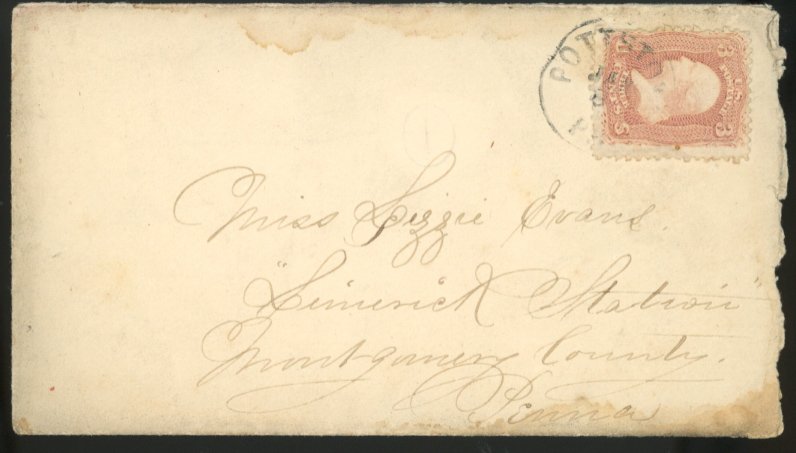 POTTST
Miss Lizzie Evans.
"Limerick Station"
Montgomery County.
Penna